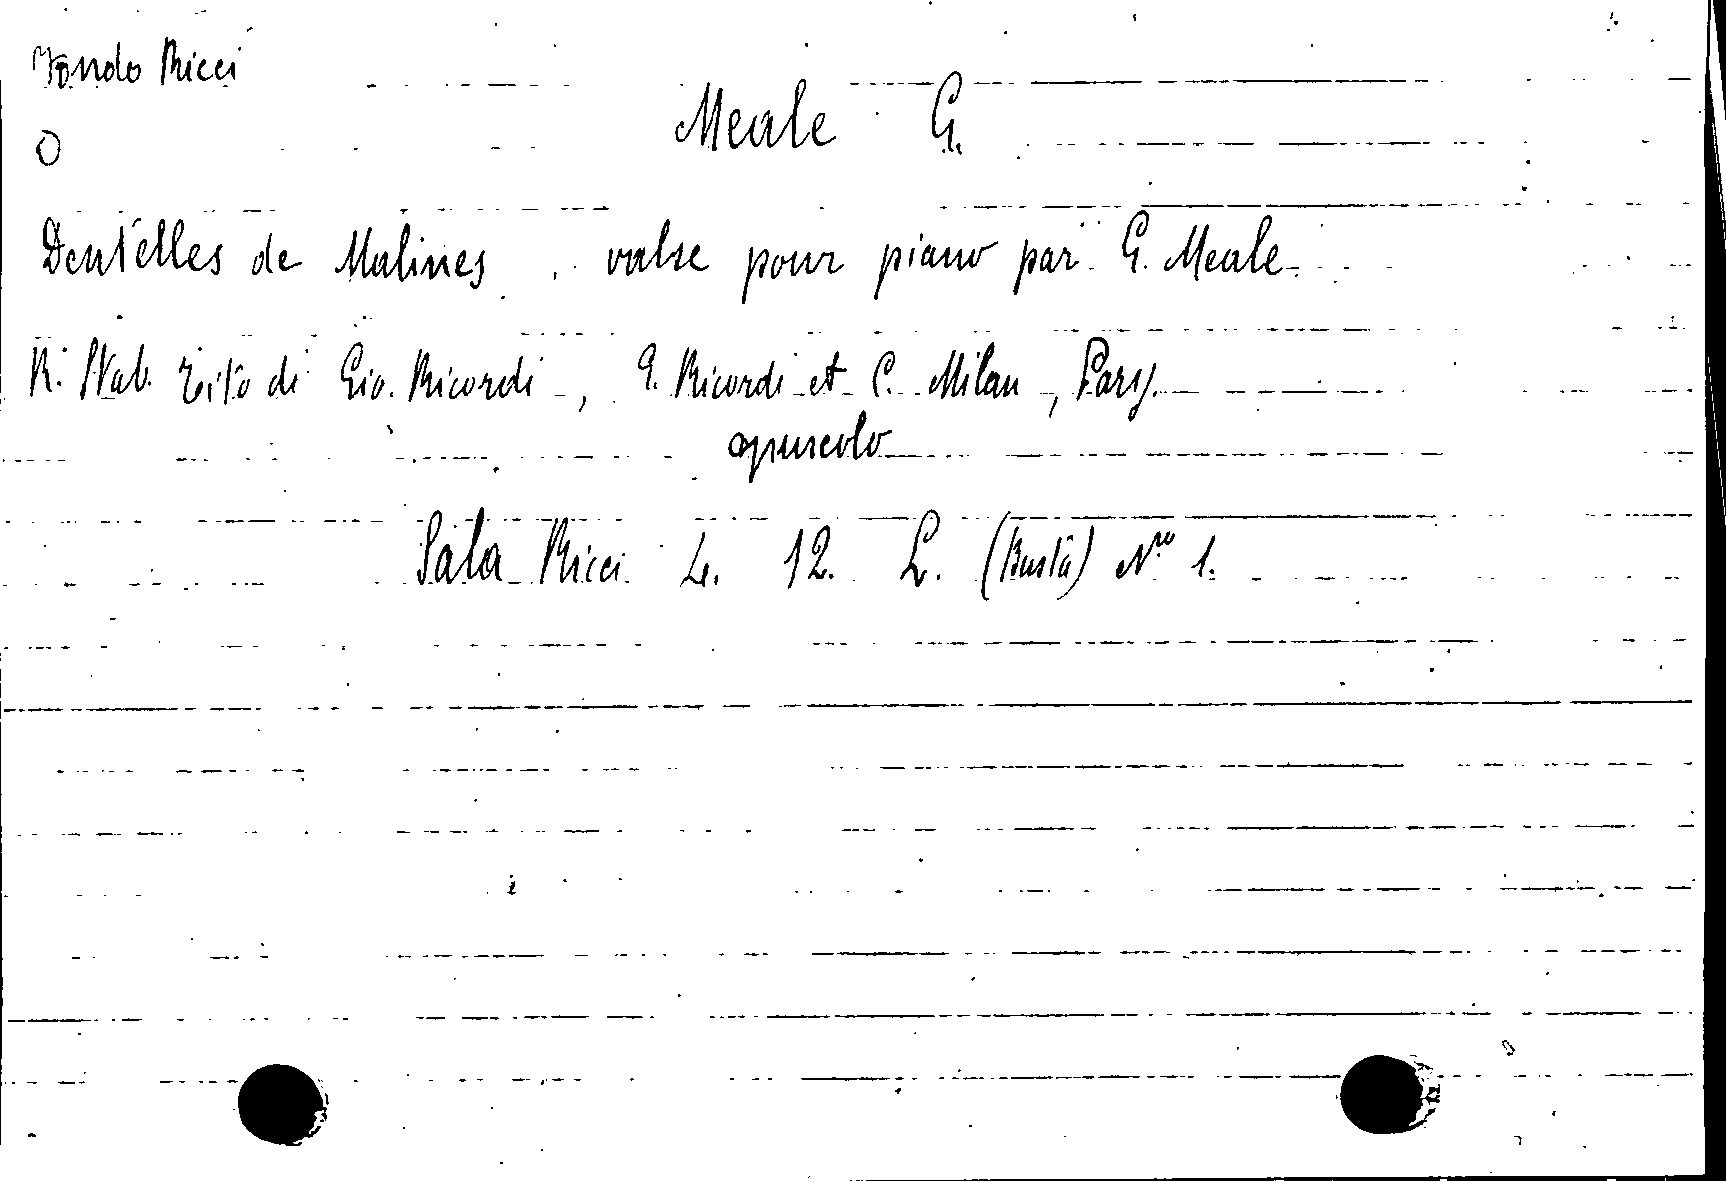 Fondo Ricci
O
Meale G.
Dentelles de Malines, valse pour piano par G. Meale
R. Stab. Tito di Gio. Ricordi, G. Ricordi et C. Milan, Pary.
opuscolo
Sala Ricci L. 12. L. (Busta) Nro 1.